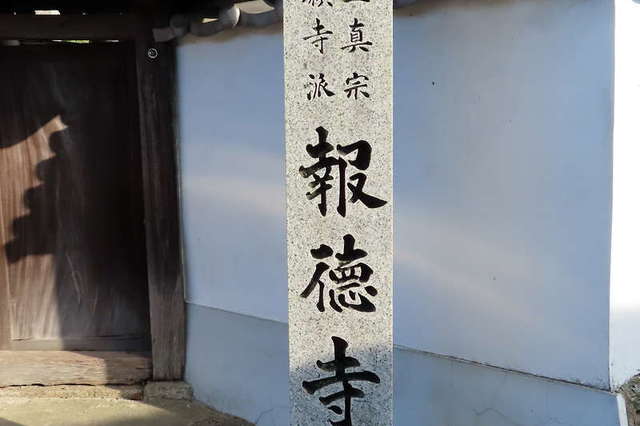 真宗
寺派
報徳寺